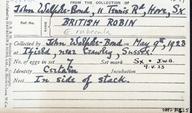 FROM THE COLLECTION OF
John Walpole-Bond, 11 Tennis Rd, Hove, Sx
BRITISH ROBIN
E. rubecula
Collected by John Walpole-Bond on May 9th, 1923
at Ifield, near Crawley, Sussex.
No. of eggs in set 7
Identity Certain
Nest In side of stack